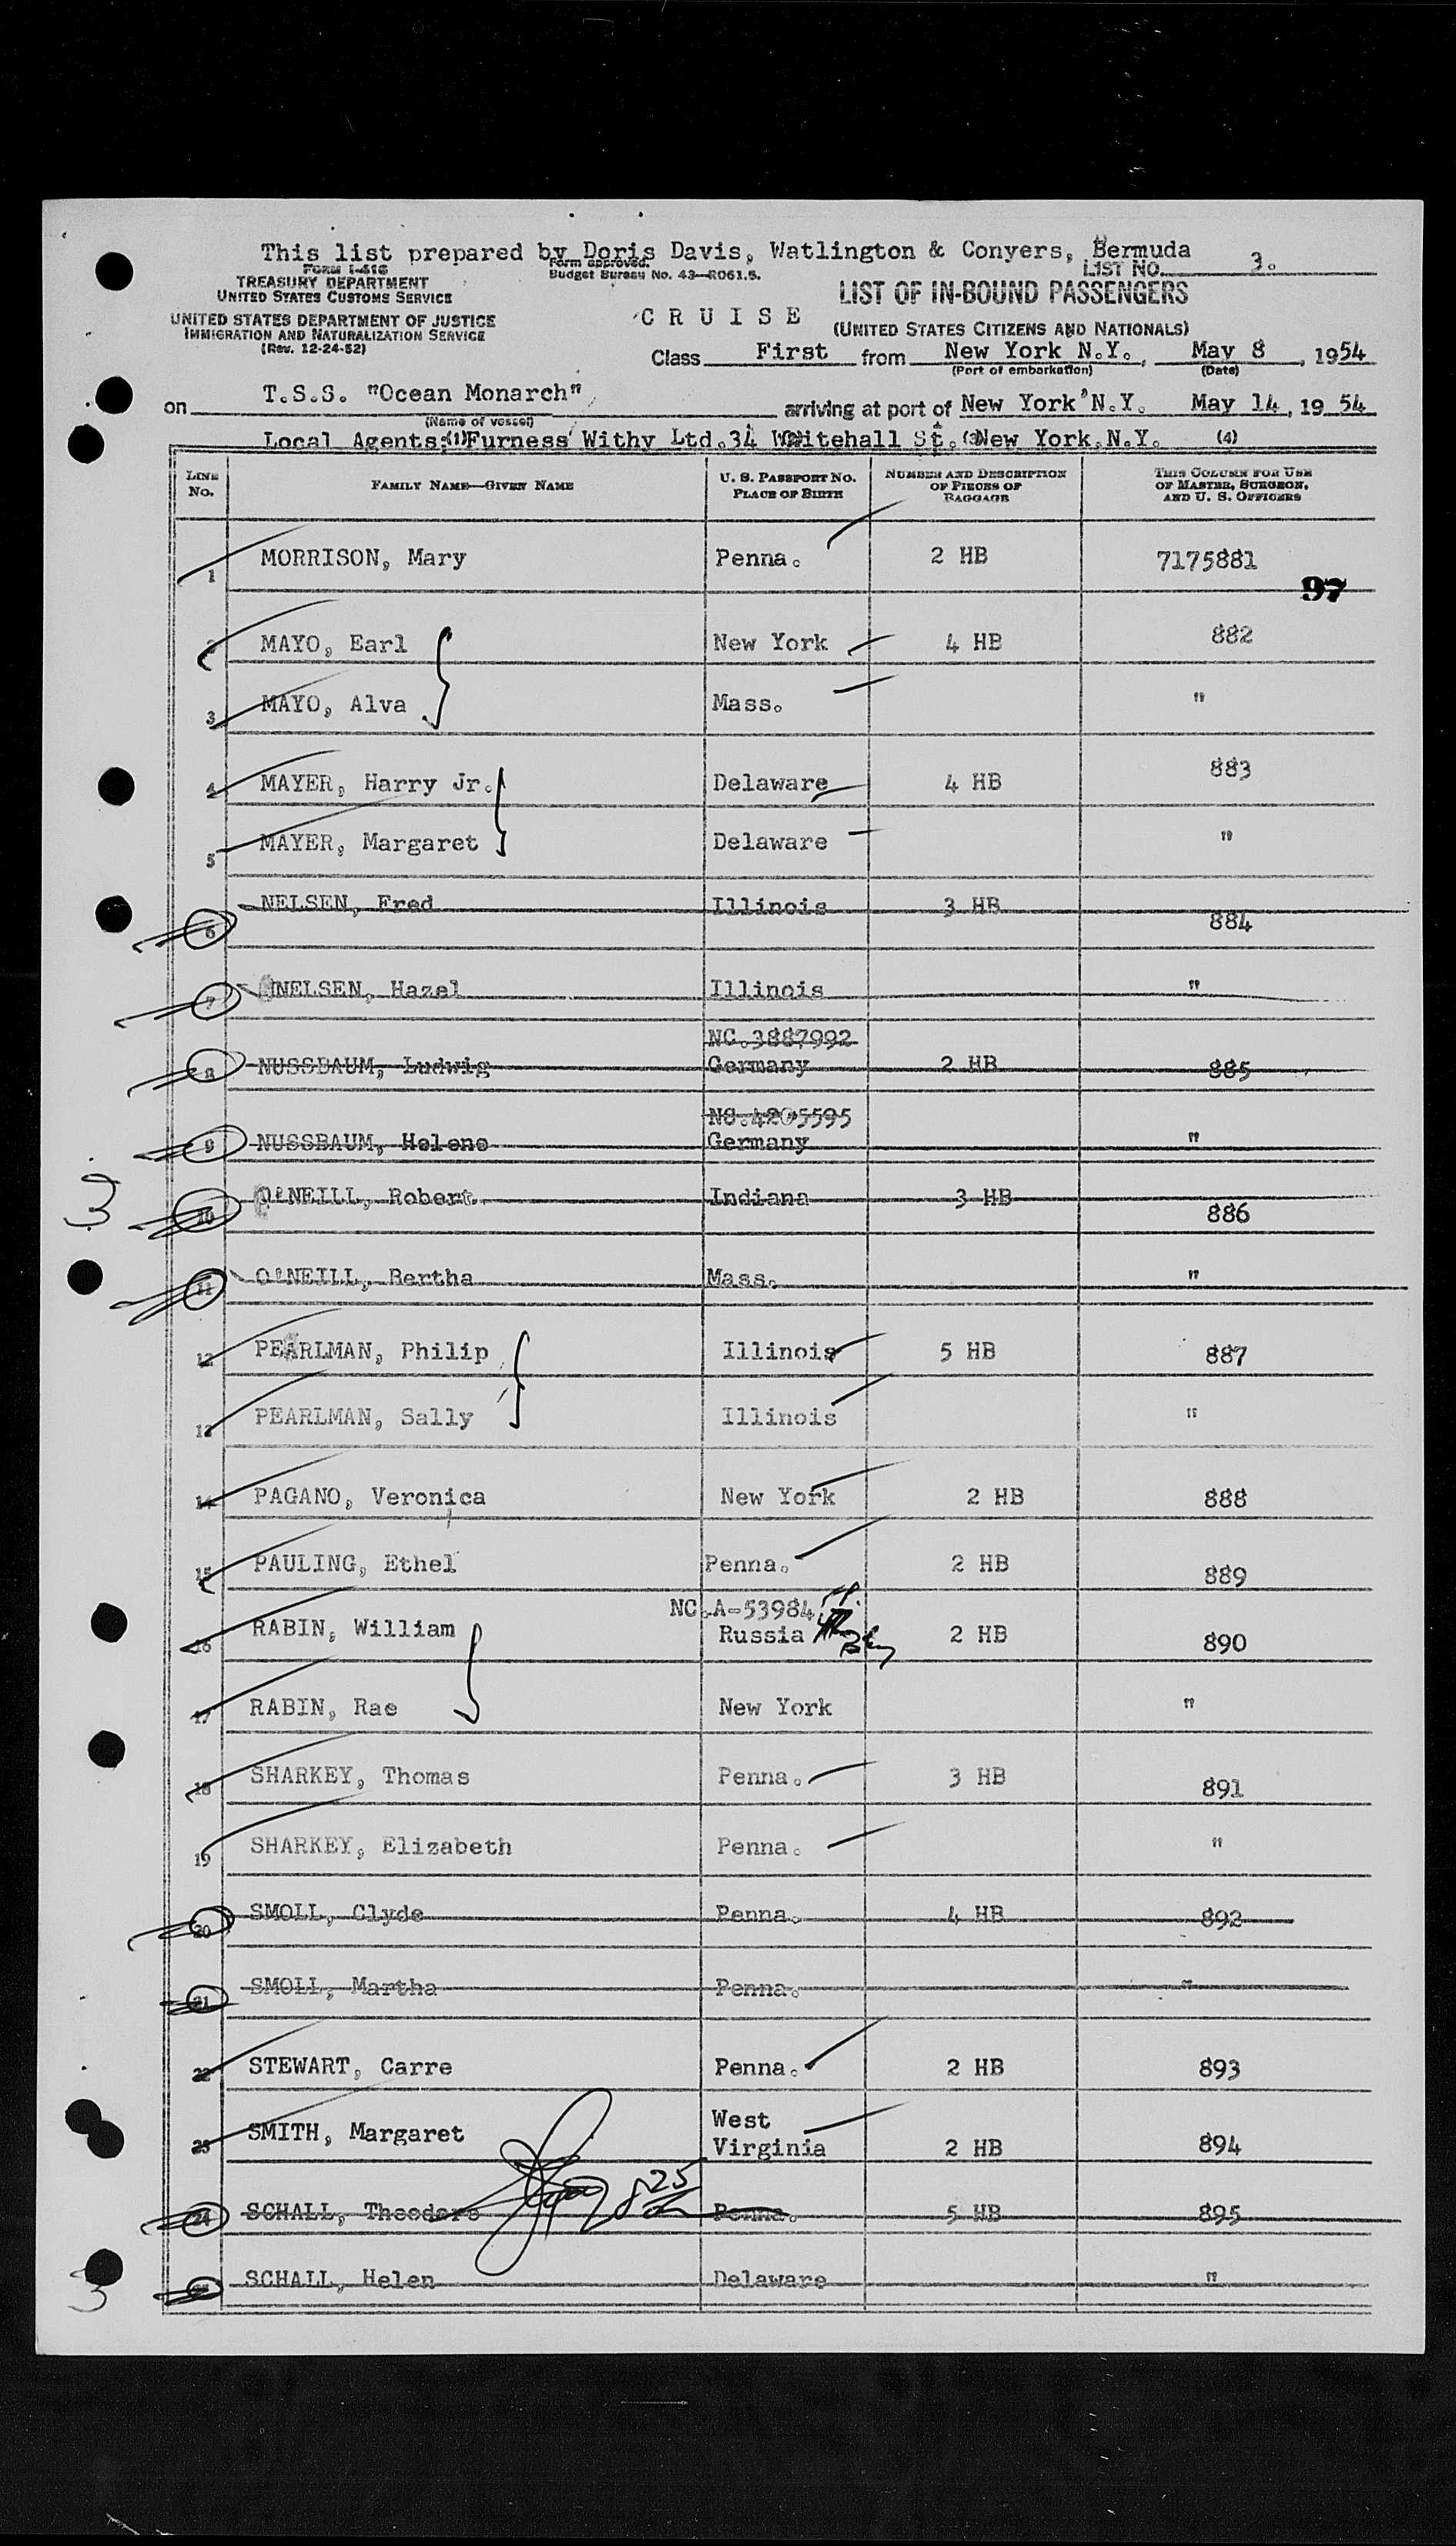 This list prepared by Doris Davis, Watlington & Conyers, Bermuda
Form I-416
TREASURY DEPARTMENT
UNITED STATES CUSTOMS SERVICE
UNITED STATES DEPARTMENT OF JUSTICE
IMMIGRATION AND NATURALIZATION SERVICE
(Rev. 12-24-52)
Form approved.
Budget Bureau No. 43—R061.5.
LIST NO. 3.
LIST OF IN-BOUND PASSENGERS
CRUISE
(UNITED STATES CITIZENS AND NATIONALS)
Class First from New York N.Y., May 8, 1954
(Port of embarkation) (Date)
on T.S.S. "Ocean Monarch" arriving at port of New York N.Y. May 14, 1954
(Name of vessel)
Local Agents: (1) Furness Withy Ltd. 34 Whitehall St. (3) New York. N.Y. (4)
LINE No. FAMILY NAME—GIVEN NAME U. S. PASSPORT NO. PLACE OF BIRTH NUMBER AND DESCRIPTION OF PIECES OF BAGGAGE THIS COLUMN FOR USE OF MASTER, SURGEON, AND U. S. OFFICERS
1 MORRISON, Mary Penna. 2 HB 7175881
97
2 MAYO, Earl New York 4 HB 882
3 MAYO, Alva Mass. "
4 MAYER, Harry Jr. Delaware 4 HB 883
5 MAYER, Margaret Delaware "
6 NELSEN, Fred Illinois 3 HB 884
7 NELSEN, Hazel Illinois "
NC.3887992
8 NUSSBAUM, Ludwig Germany 2 HB 885
NC.4205595
9 NUSSBAUM, Helene Germany "
3
10 O'NEILL, Robert. Indiana 3 HB 886
11 O'NEILL, Bertha Mass. "
12 PEARLMAN, Philip Illinois 5 HB 887
13 PEARLMAN, Sally Illinois "
14 PAGANO, Veronica New York 2 HB 888
15 PAULING, Ethel Penna. 2 HB 889
NC.A-53984
16 RABIN, William Russia 2 HB 890
17 RABIN, Rae New York "
18 SHARKEY, Thomas Penna. 3 HB 891
19 SHARKEY, Elizabeth Penna. "
20 SMOLL, Clyde Penna. 4 HB 892
21 SMOLL, Martha Penna. "
22 STEWART, Carre Penna. 2 HB 893
23 SMITH, Margaret West Virginia 2 HB 894
24 SCHALL, Theodore Penna. 5 HB 895
3
25 SCHALL, Helen Delaware "